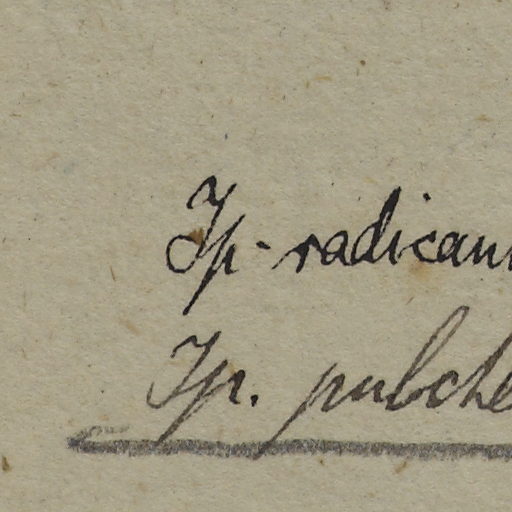 Ip. radican
Ip. pulche